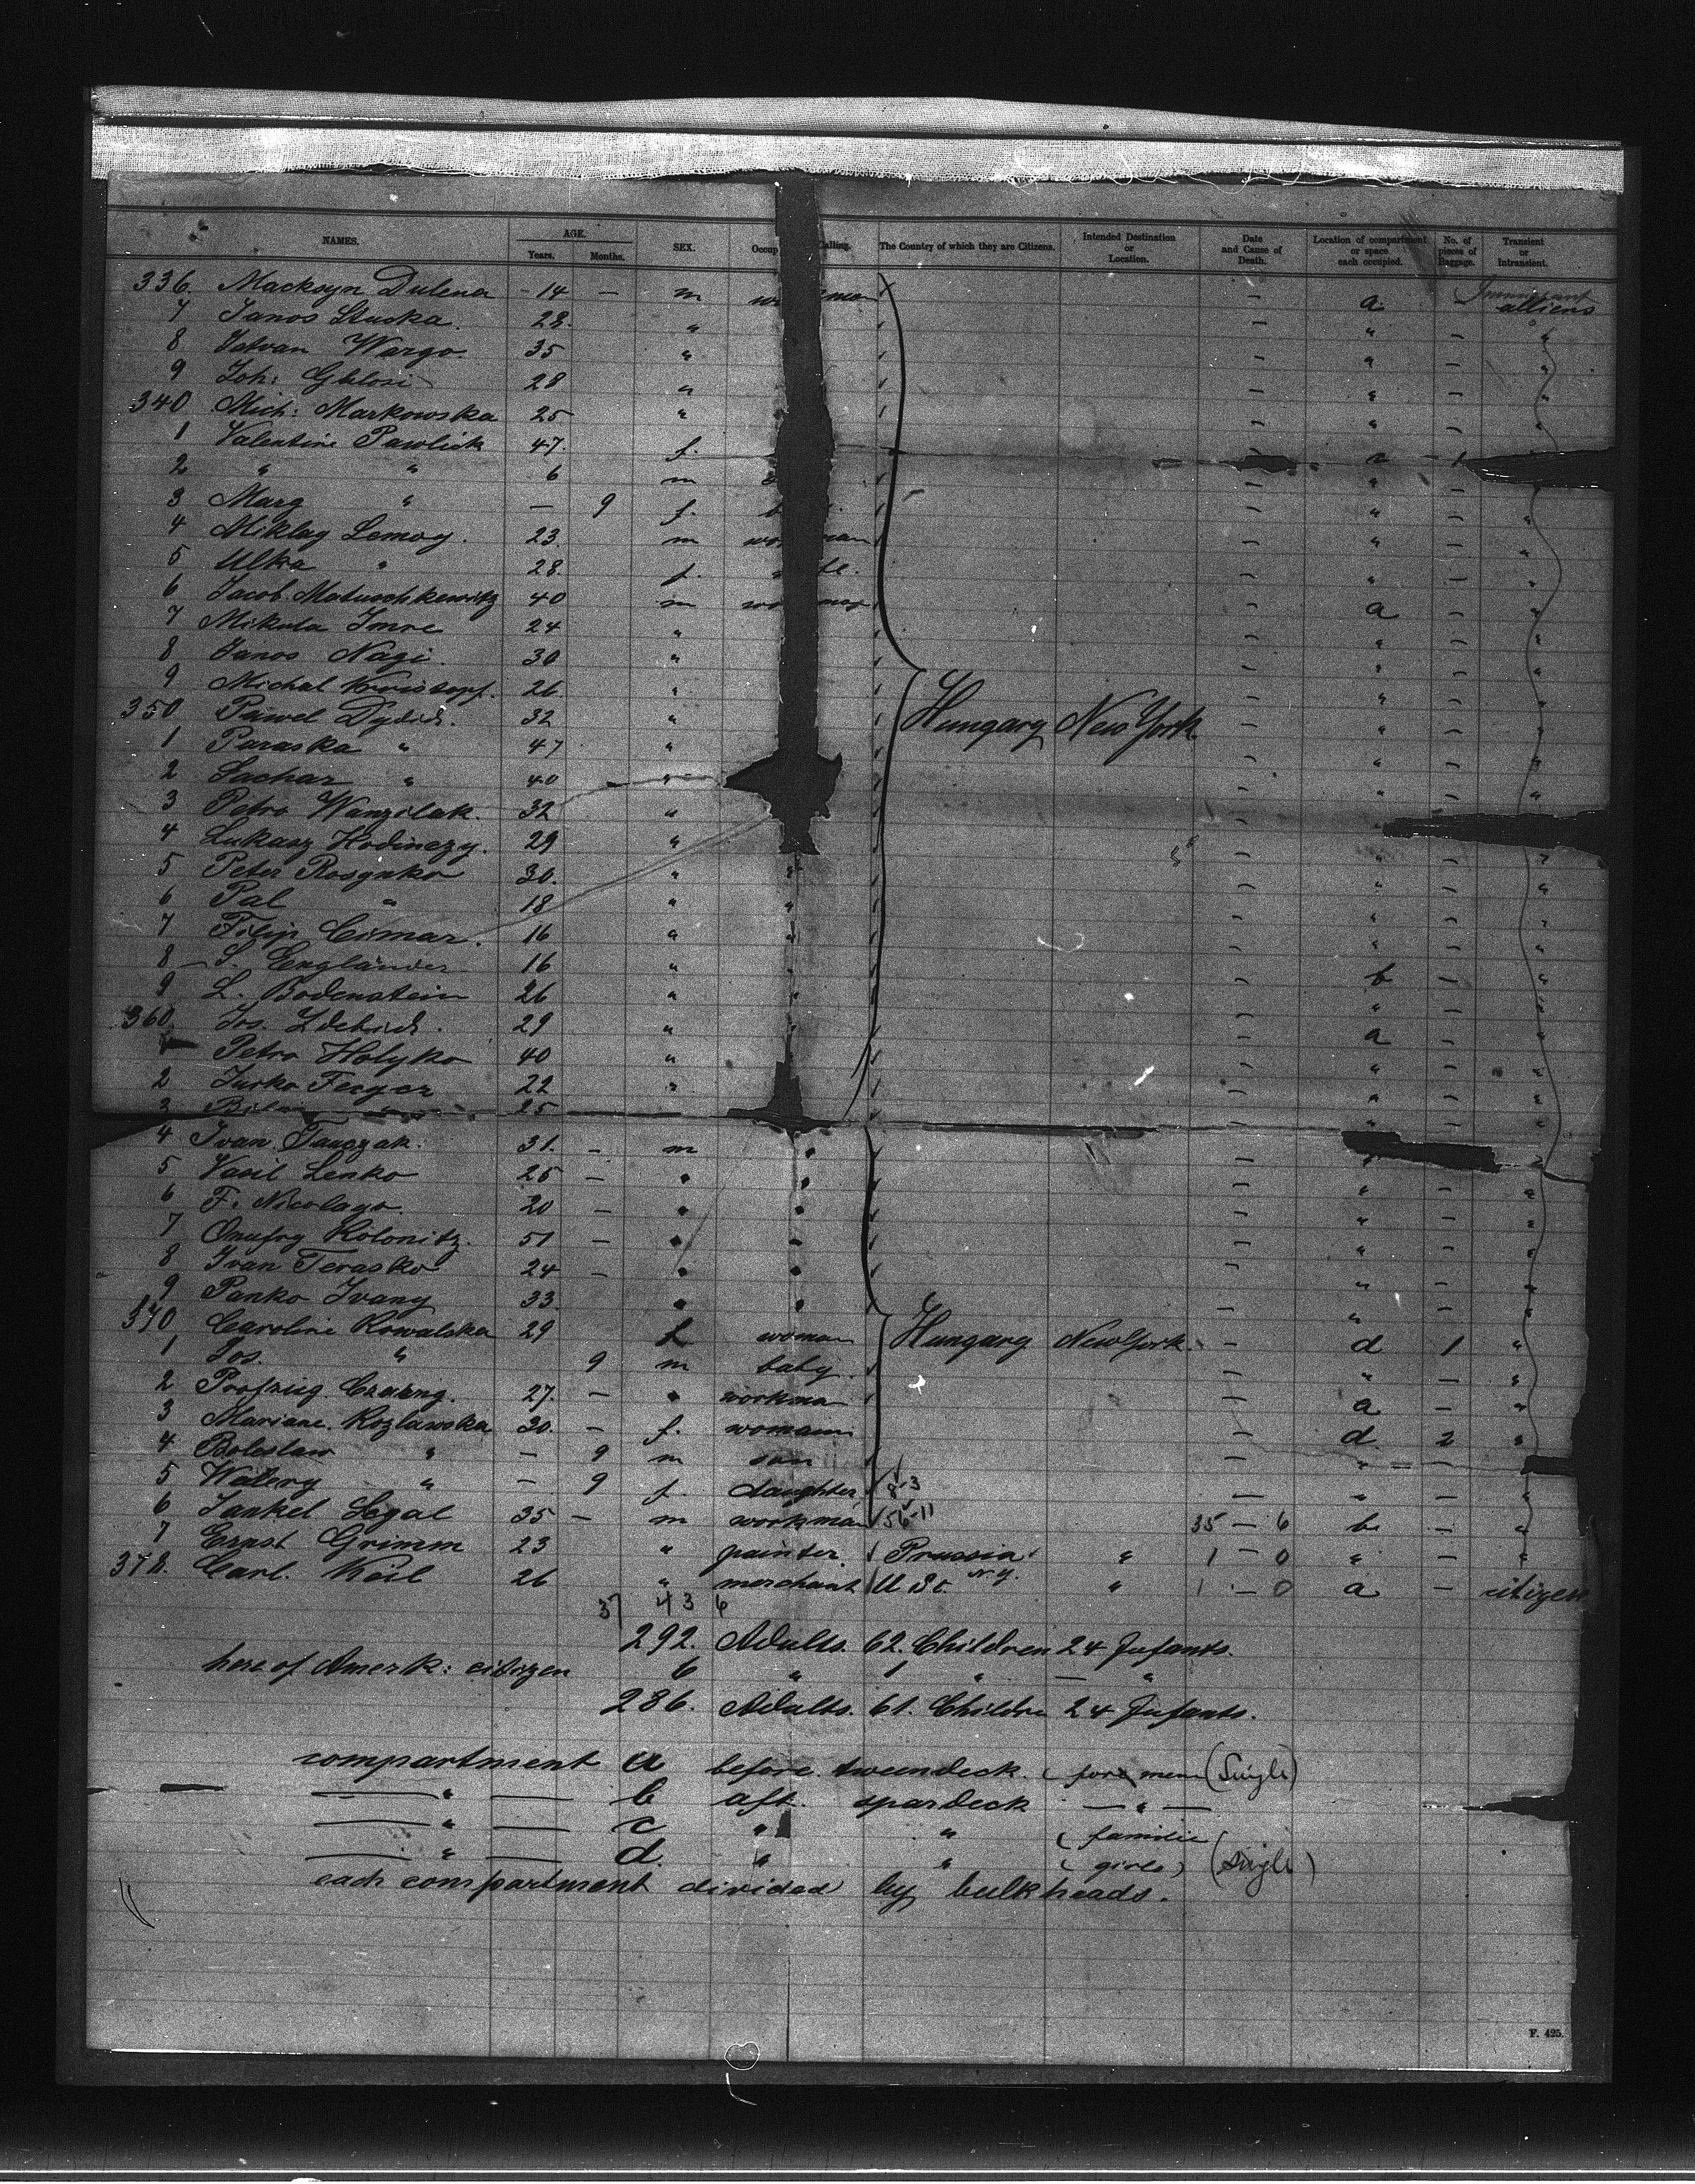 NAMES. AGE. Years. Months. SEX. Occup alling. The Country of which they are Citizens. Intended Destination or Location. Date and Cause of Death. Location of compartment or space each occupied. No. of pieces of Baggage. Transient or Intransient.
336. Macksyn Dulena - 14 - m a. alliens
7 Janos 28. " " - "
8 Istvan Wargo. 35 " " - "
9 Joh: 28 " " - "
340 Mich: Markowska 25 " " - "
1 Valentine Pawlick 47. f. 1
2 " " 6 m " -
3 Marg " - 9 f. " - "
4 Miklag Lemoy. 23. m " - "
5 Ulka " 28. f. " - "
6 Jacob. Matuschkewitz 40 m a - "
7 Mikula Imre 24 " " - "
8 Janos Nagi. 30 " " - "
9 Michal 26. " " - "
350 Pawel Dydich. 32 " Hungary New York. " - "
1 Paraska " 47 " " - "
2 Sachar " 40 " " - "
3 Petro Wanzilak. 32 " " - "
4 Lukasz Hodinczy. 29 " " - "
5 Peter Rosynko 30. " " " - "
6 Pal " 18 " " " - "
7 Filip Cimar. 16 " " " - "
8 S. Engländer 16 " " b - "
9 L. Bodenstein 26 " " " - "
360 Jos. 29 " " a - "
Petro Holyko 40 " " - "
2 Jurko Feyer 22 " " - "
3 25
4 Ivan Tauczak. 31. - m "
5 Vasil Lenko 25 - " " " - "
6 F. Nicolayo. 20 - " " " - "
7 Onufry Kolonitz. 51 - " " " - "
8 Ivan Terasko 24 - " " " - "
9 Panko Ivany 33. " " " - "
370 Caroline Kowalska 29 f. woman Hungary New York. - d 1 "
1 Jos. " 9 m baby. - " - "
2 27. - " workman - a - "
3 Mariane. Kozlawska 30. - f. womann - d. 2 "
4 Boleslaw " - 9 m son " -
5 " - 9 f. daughter 8-3 - " - "
6 Jankel Segal 35 - m workman 56-11 35 - 6 b. - "
7 Ernst Grimm 23 " painter. Prussia " 1 - 0 " - "
378. Carl. Keil 26 " merchant U St. N.Y. " 1 - 0 a - citizen
37 43 6
292. Adults. 62. Children 24 Infants.
here of Amerk: citizen 6 " 1 " - "
286. Adults. 61. Childre 24 Infants.
compartment a before. tweendeck. ( for men (Single)
— " — b aft. spardeck — " —
— " — c " " ( familie
— " — d. " " ( girls) (Single)
each compartment divided by bulkheads.
F. 425.